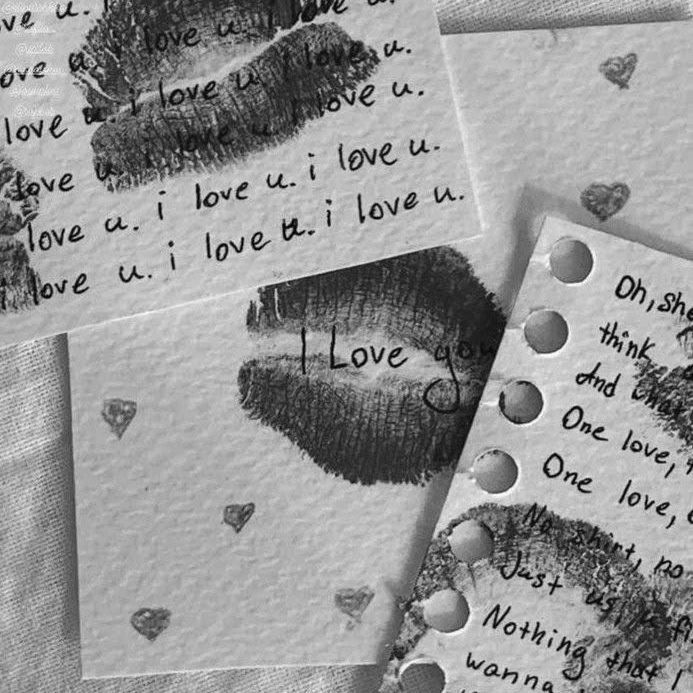 ve u. i
love u. i love u. i love u.
love u. i love u. i love u.
love u. i love u. i love u.
love u. i love u. i love u.
i love u. i love u. i love u.
I Love you
Oh, she
think
And what
One love,
One love,
No shirt, no
Just us,
Nothing that I
wanna